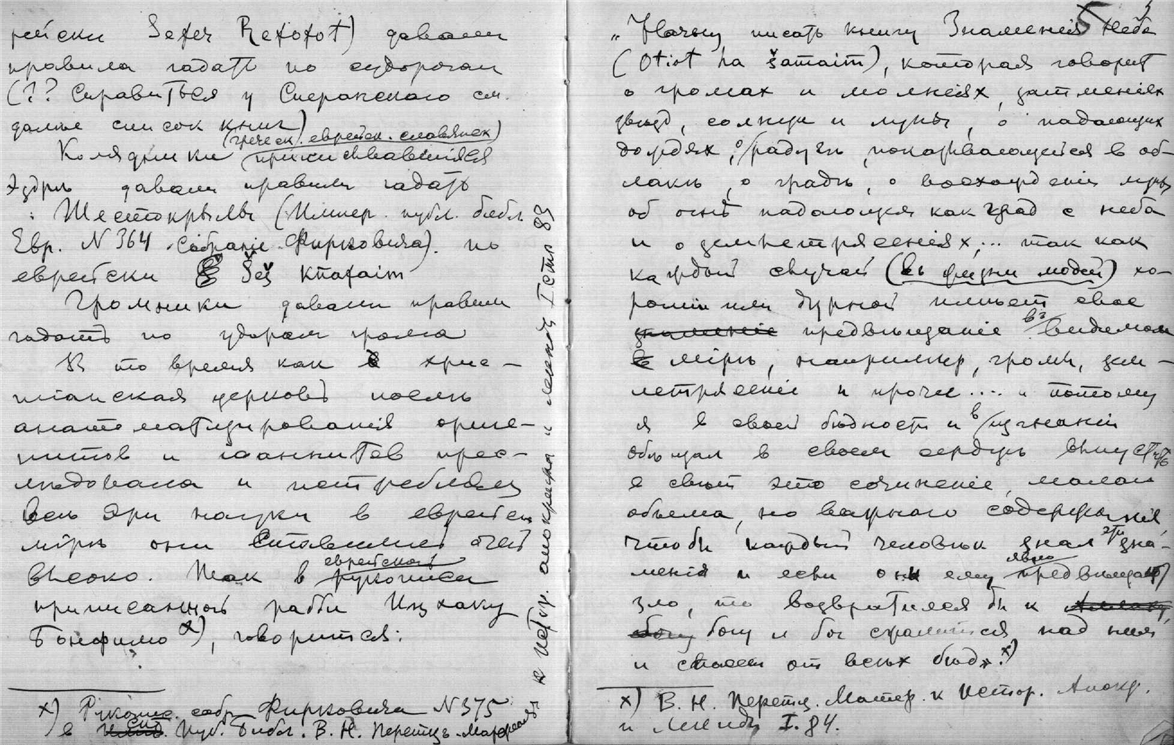 рейски Sefer Refofot) давали
правила гадать по судорогам
(?? Справиться у Сперанского см.
далее список книг)
(греческ. еврейск. славянск)
Колядники приписывавшийся
Эздрѣ давали правила гадать
: Шестокрылъ (Импер. публ. библ
Евр. N 364 собранiе Фирковича). по
еврейски Šeš Knafaim
Громники давали правила
гадать по ударам грома
В то время как хрис-
тiанская церковь послѣ
анатематизированiя ориге-
нитов и гоанитов прес-
лѣдовала и истребляла
всѣ эти науки в еврейск
мiрѣ они ставились очень
высоко. Так в еврейской рукописи
приписанной рабби Ицхаку
Бонфимо x), говорится:
?
x) Рукопис. собр Фирковича N 375
в Имп. Пуб. Библ. В. Н. Перетцъ Матерiалы
к истор. апокрифа и легенды I стр 83
5
„Начну писать книгу Знаменiя Неба
(Otiot ha šamaim), которая говорит
о громах и молнiях, затменiях
звѣзд, солнца и луны, о падающих
дождях, о радугѣ, показывающейся в об-
лакѣ, о градѣ, о восхожденiи луны
об огнѣ падающем как град с неба
и о землетрясенiях,... так как
каждый случай (въ жизни людей) хо-
рошiй или дурной имѣет свое
знаменiе предвѣщанiе въ видимом
мiрѣ, например, гром, зем-
летрясенiе и прочее.... и потому
я в своей бѣдности и в изгнанiи
обѣщал в своем сердцѣ выпустить
в свѣт это сочиненiе, малаго
объема, но важнаго содержанiя
чтобы каждый человѣк знал эти зна-
менiя и если они ему явно предвѣщают
зло, то возвратился бы к
богу и бог сжалится над ним
и спасет от всѣх бѣд». x)
x) В. Н. Перетц. Матер. к истор. Апокр.
и Легенды I. 84.